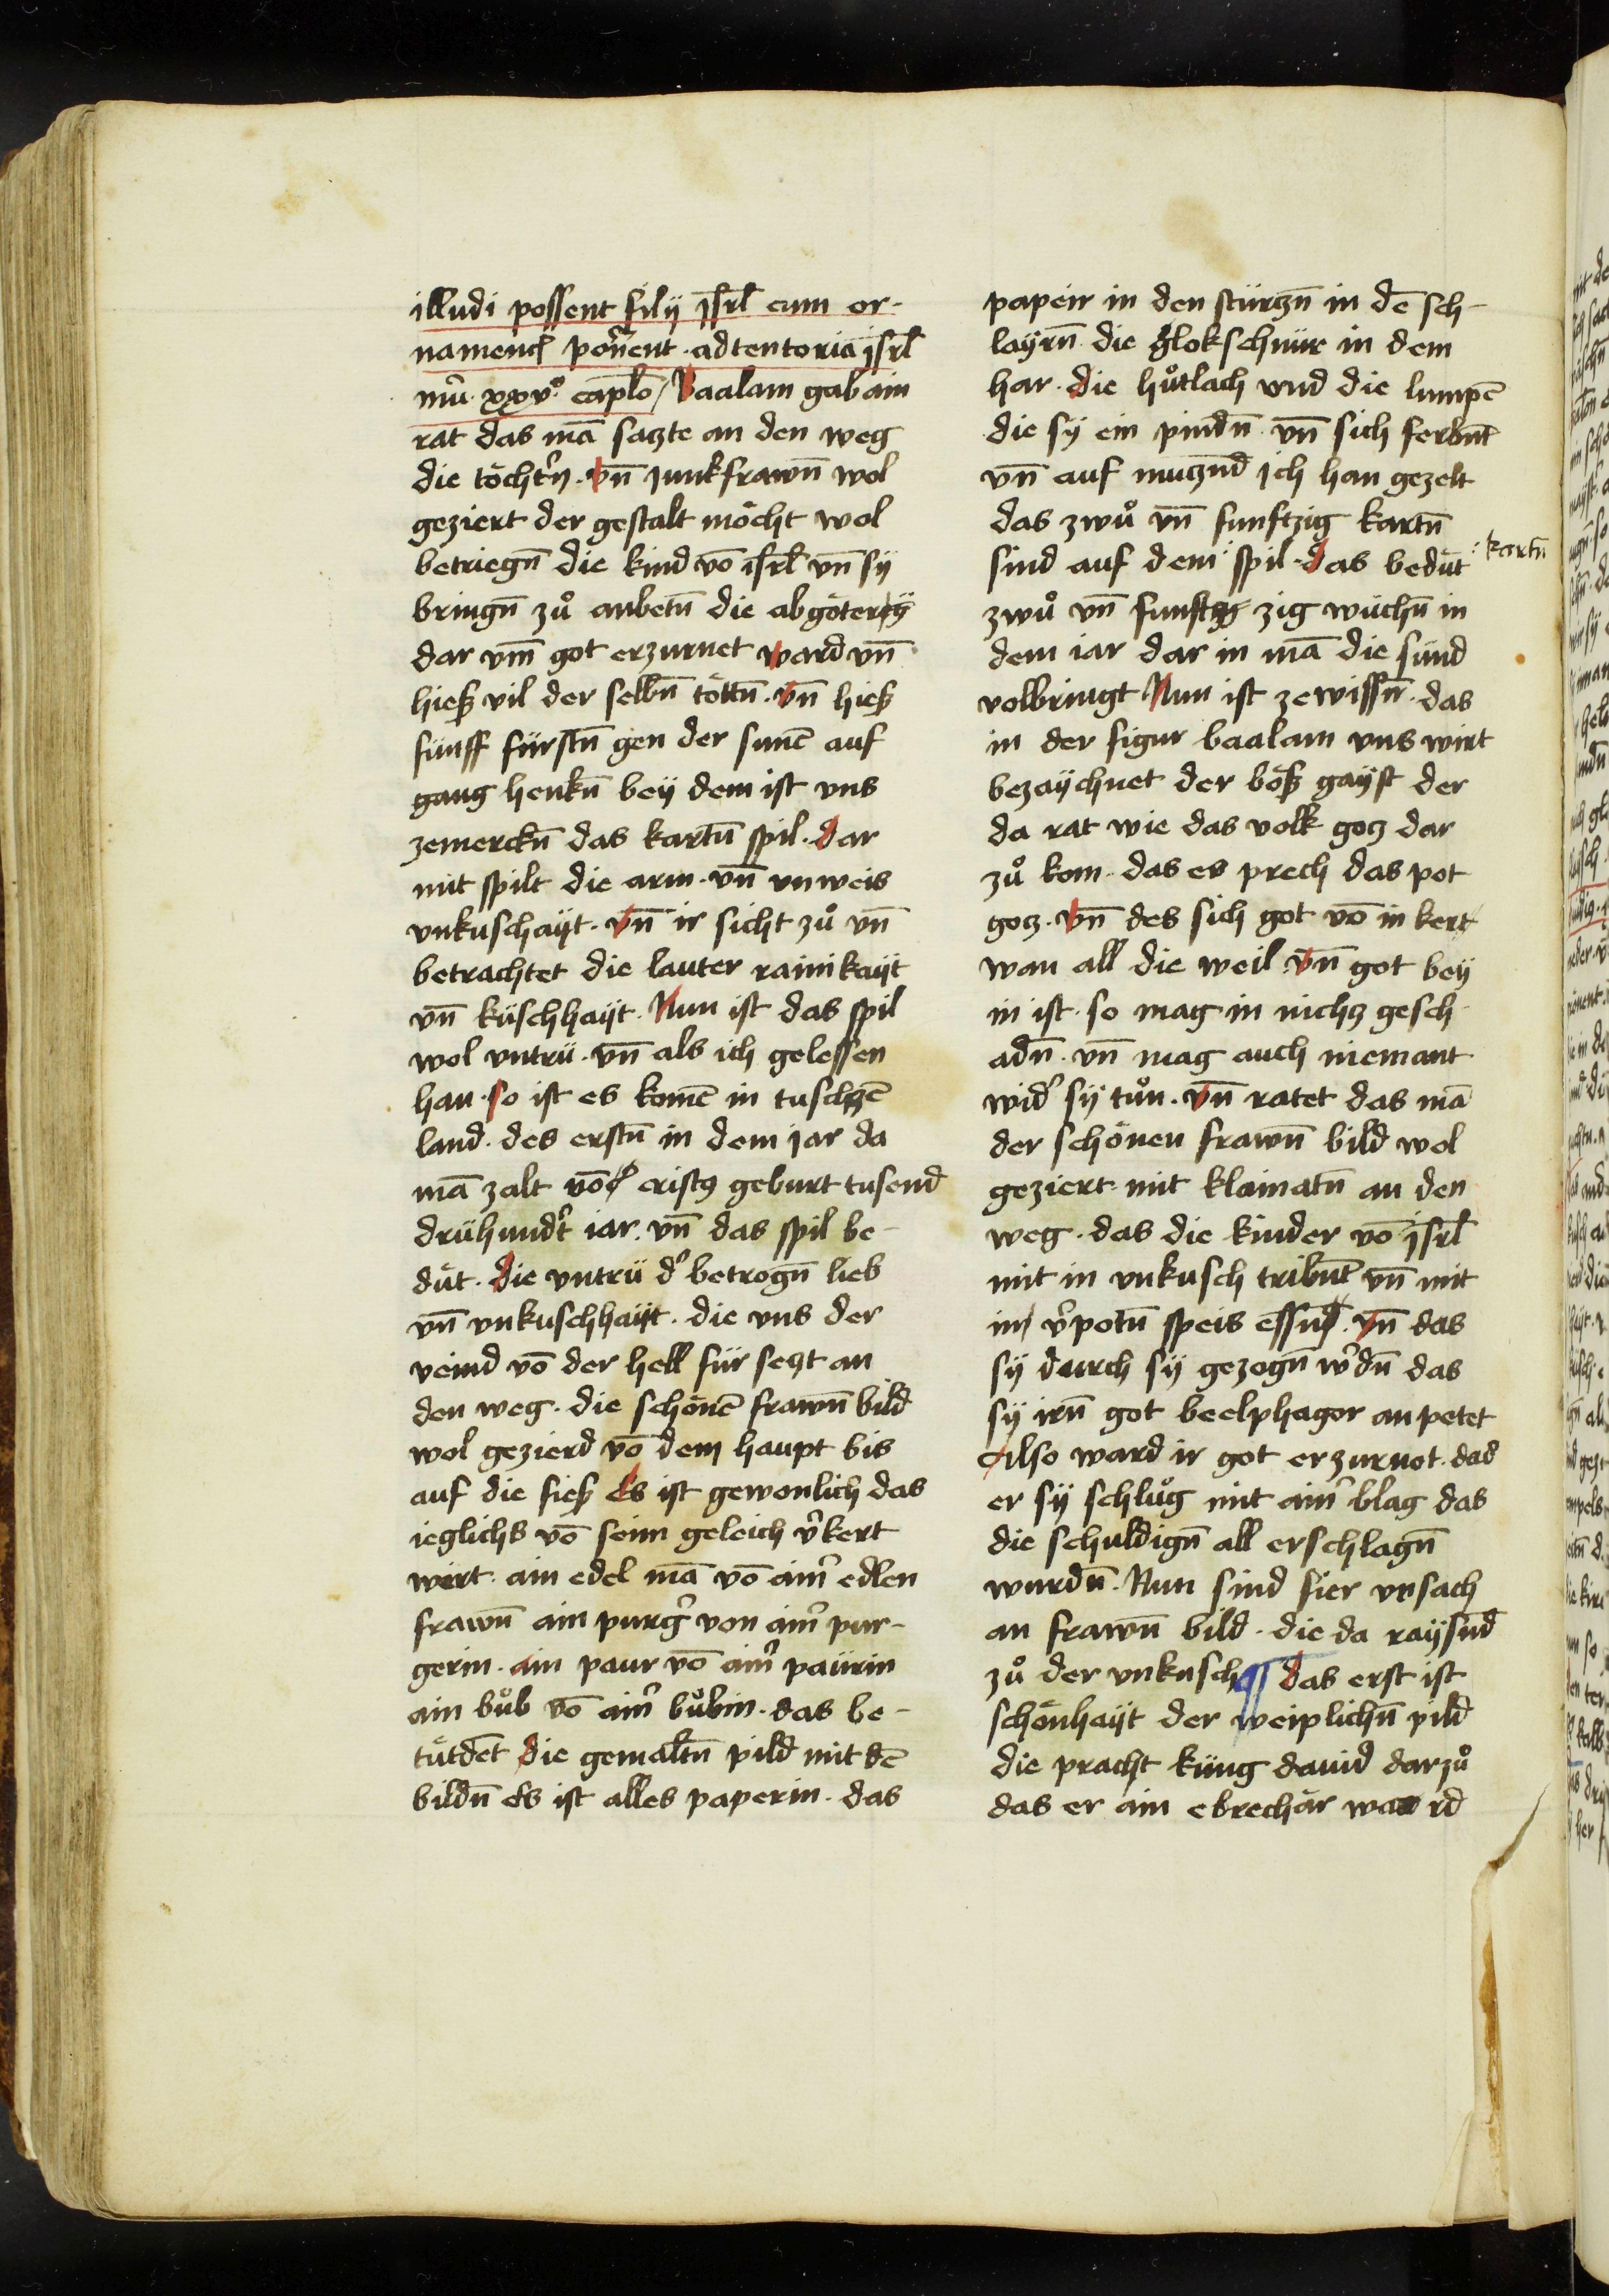 illudi possent filij jsrl̄ cum or-
namentꝭ poñent · ad tentoria jsrl̄
nu᷑i · xxv° · caplō / Baalam gab ain
rat das mā saczte an den weg
die töcht᷑n · vn̄ junkfrawn̄ wol
geziert der gestalt möcht wol
betriegn̄ die kind vō isrl̄ vn̄ sÿ
bringn̄ zů anbetn̄ die abgöterÿ
dar vm̄ got erzurnet ward vn̄
hieß vil der selbn̄ töttn̄ · vn̄ hieß
fünff fürstn̄ gen der sunē auf
gang henkn̄ beÿ dem ist vns
zemerckn̄ das kartn̄ spil · dar
mit spilt die arm · vn̄ vnweis
vnkuschaÿt · vn̄ ir sicht zů vn̄
betrachtet die lauter rainikaÿt
vn̄ küschhaÿt · Nun ist das spil
wol vntrü · vn̄ als ich gelessen
han · so ist es komē in tuschzē
land · des erstn̄ in dem jar da
mā zalt vō cristꝰ geburt tusend
drühund᷑t iar · vn̄ das spil be-
düt · die vntrü d᷑ betrogn̄ lieb
vn̄ vnkuschhaÿt · die vns der
veind vō der hell für seczt an
den weg · die schönē frawn̄ bild
wol gezierd vō dem haupt bis
auf die fieß Es ist gewonlich das
ieglichs vō seim geleich v᷑kert
wirt · ain edel mā vō aim᷑ edlen
frawn̄ ain purg᷑ von aim᷑ pur-
gerin · ain paur vō aim᷑ paürin
ain bůb vō aim᷑ bůbin · das be-
tütdēt die gemaltn̄ pild mit dē
bildn̄ Es ist alles paperin · das
papeir in den stürczn̄ in dē sch-
laÿrn̄ die glokschnür in dem
har · die hůtlach vnd die lumpē
die sÿ ein pindn̄ · vn̄ sich ferbn̄t
vn̄ auf muczn̄d jch han gezelt
das zwů vn̄ funftzig kartn̄
sind auf dem spil · das bedüt
: kartn̄
zwů vn̄ funftzig wuchn̄ in
dem iar dar in mā die sünd
volbringt Nun ist zewissn̄ · das
in der figur baalam vns wirt
bezaÿchnet der böß gaÿst der
da rat wie das volk gocz dar
zů kom · das es prech das pot
gocz · vn̄ des sich got vō in kert
wan all die weil vn̄ got beÿ
in ist · so mag in nichcz gesch-
adn̄ · vn̄ mag auch niemant
wid᷑ sÿ tůn · vn̄ ratet das mā
der schönen frawn̄ bild wol
geziert mit klainatn̄ an den
weg · das die kinder vō jsrl̄
mit in vnkusch tribn̄t vn̄ mit
in v᷑potn̄ speis essn̄ · vn̄ das
sÿ durch sÿ gezogn̄ w᷑dn̄ das
sÿ irn̄ got beelphagor an petet
Also ward ir got erzurnot · das
er sÿ schlůg mit aim᷑ blag das
die schuldign̄ all erschlagn̄
wurdn̄ · Nun sind fier vrsach
an frawn̄ bild · die da raÿsn̄d
zů der vnkusch ¶ das erst ist
schönhaÿt der weiplichn̄ pild
die pracht küng dauid darzů
das er ain ebrechär waard